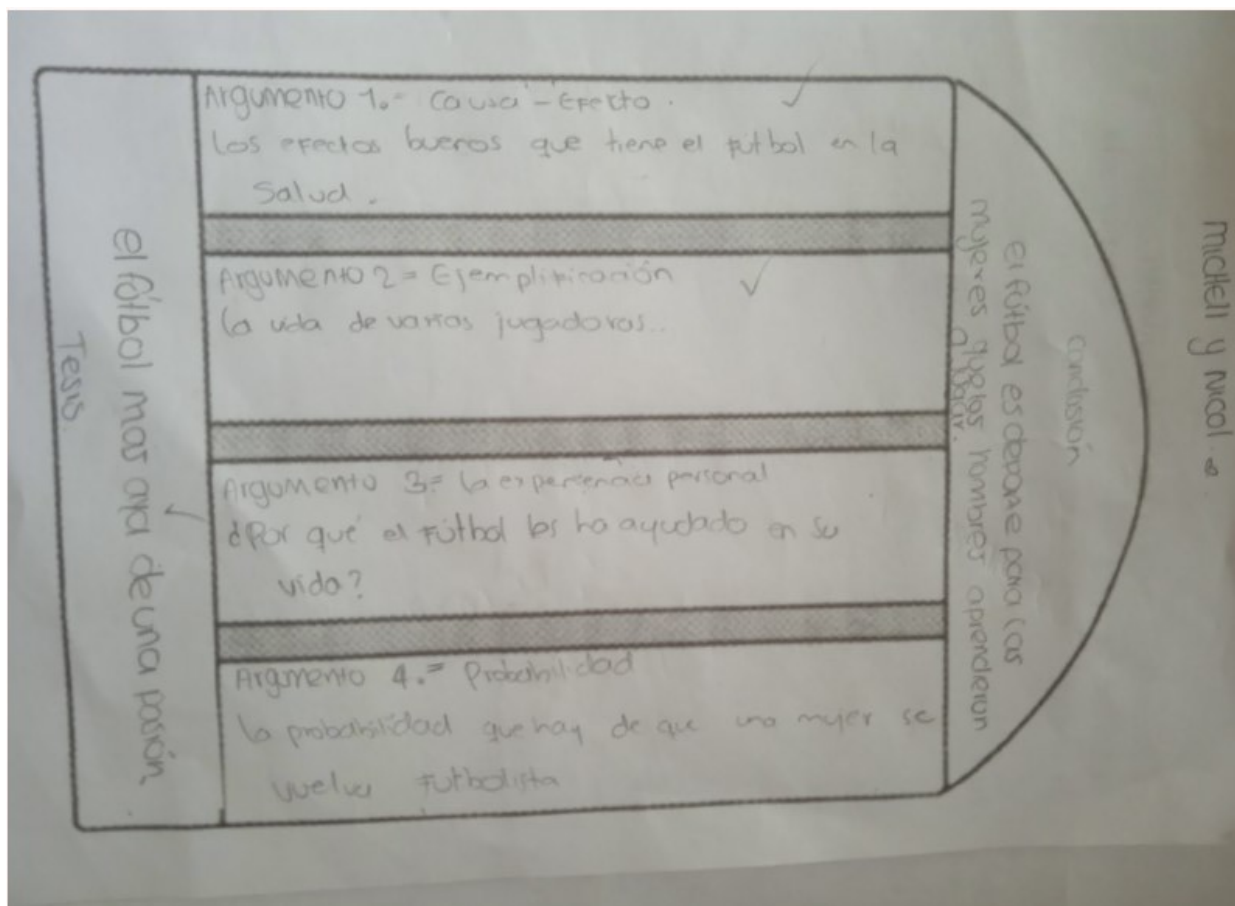 michell y nicol
conclusión
el fútbol es deporte para las
mujeres que los hombres aprendieron
a jugar.
Argumento 1.- Causa - Efecto.
Los efectos buenos que tiene el fútbol en la
Salud.
Argumento 2 = Ejemplificación
la vida de varias jugadoras...
Argumento 3= la experiencia personal
¿Por qué el fútbol les ha ayudado en su
vida?
Argumento 4.= Probabilidad
la probabilidad que hay de que una mujer se
vuelva futbolista
el fútbol mas aya de una pasión.
Tesis.